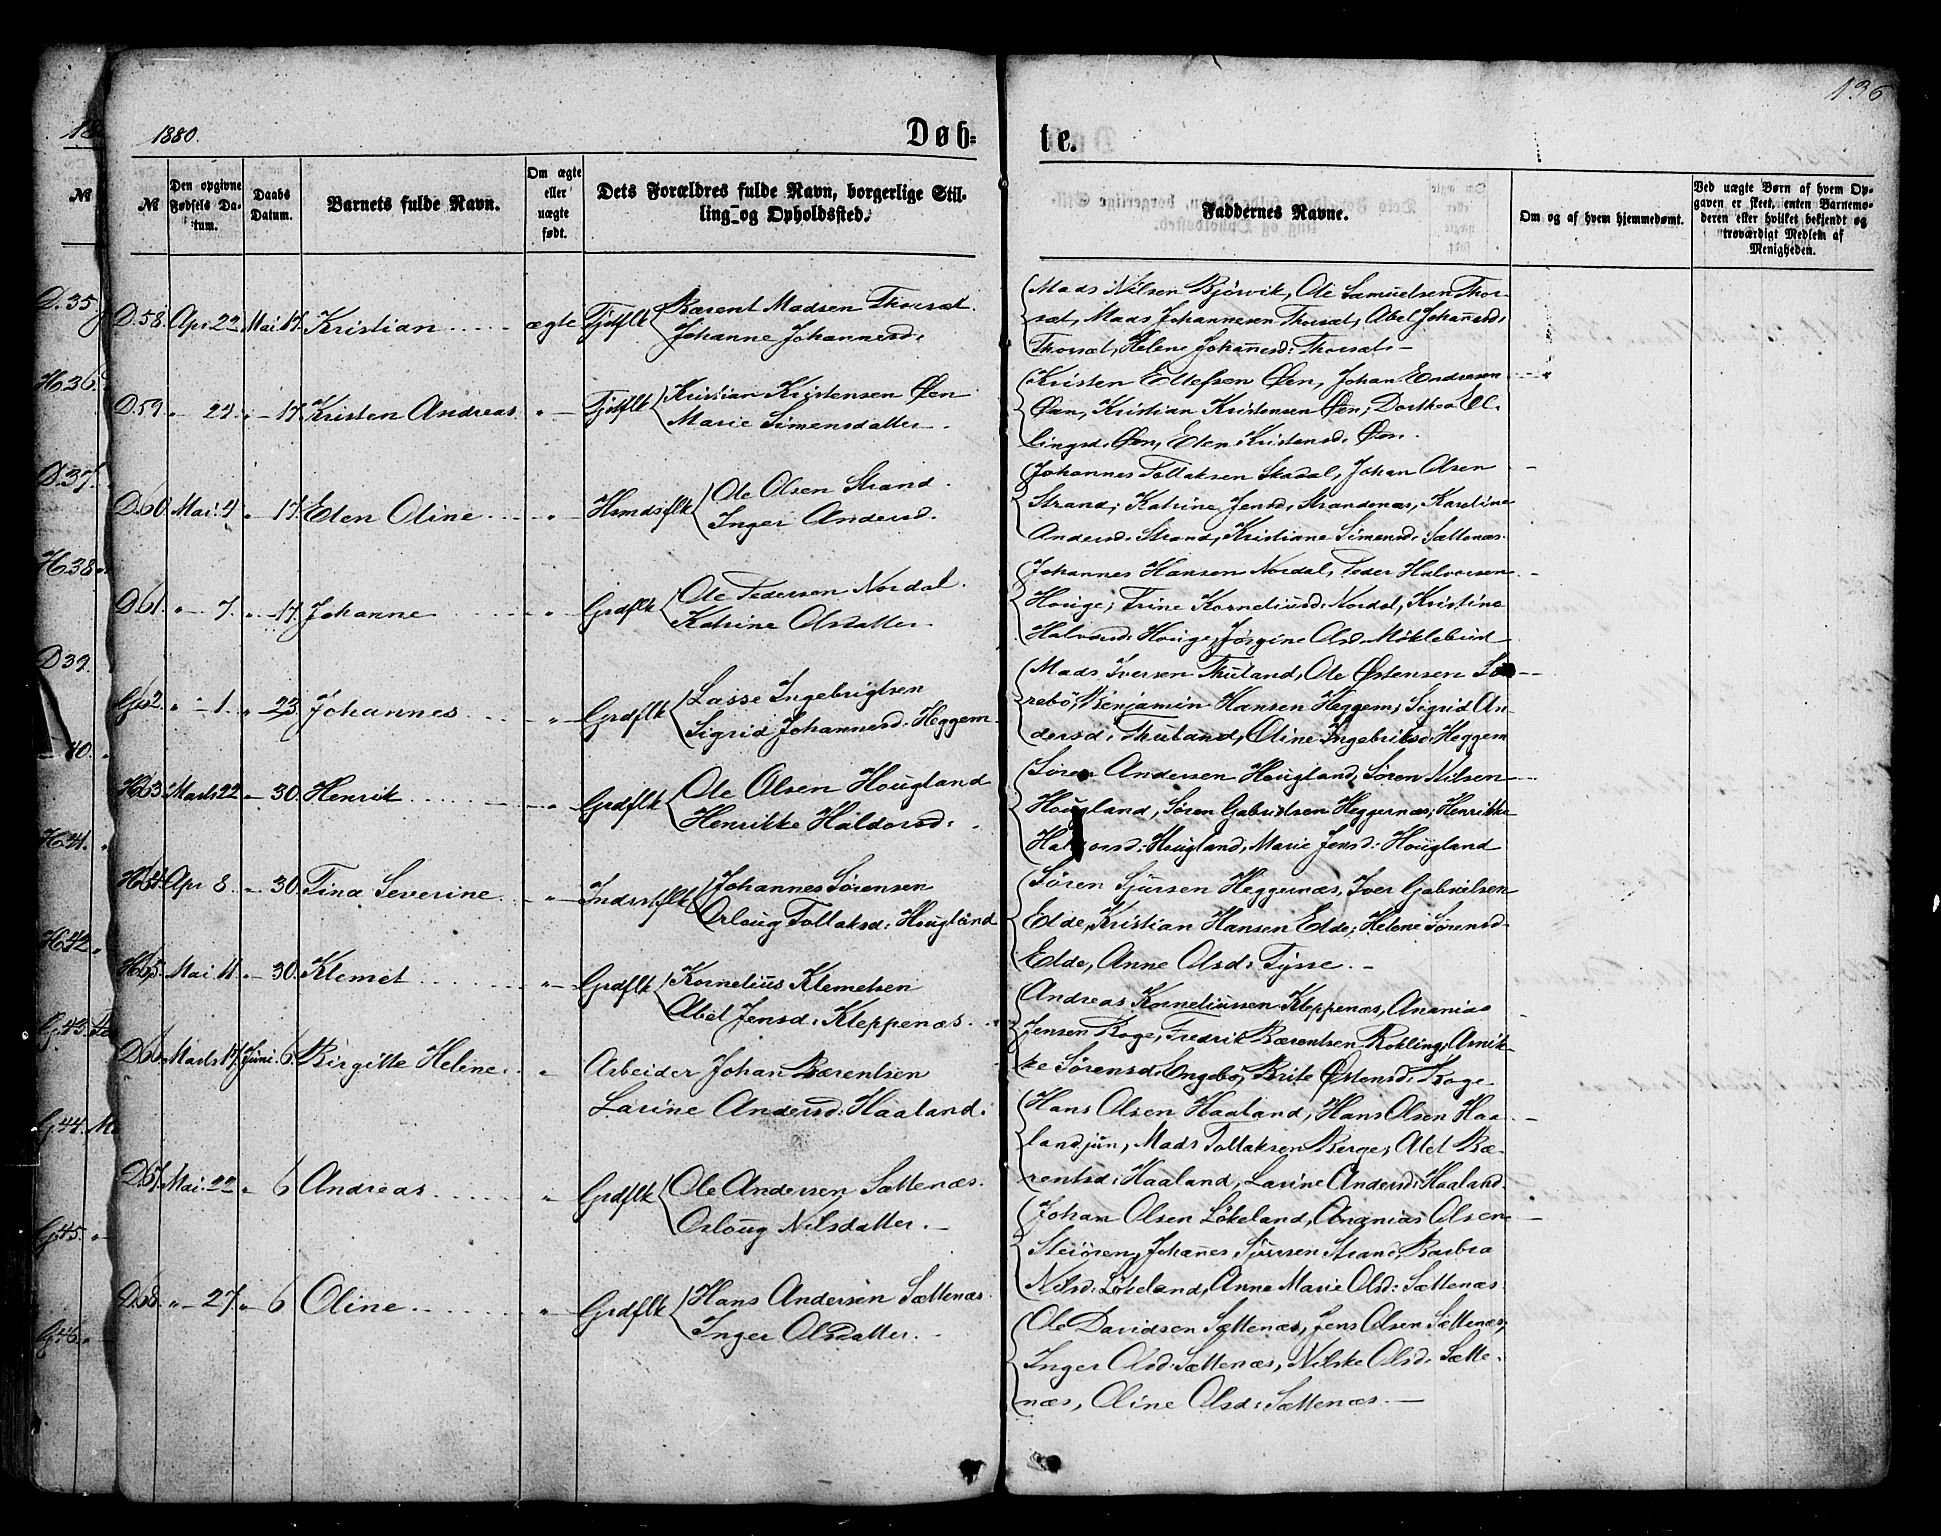 136
1880.
Døb-
te.
№
Den opgivne Fødsels Datum.
Daabs Datum.
Barnets fulde Navn.
Om ægte eller uægte født.
Dets Forældres fulde Navn, borgerlige Stilling og Opholdssted.
Faddernes Navne.
Om og af hvem hjemmedøbt.
Ved uægte Børn af hvem Opgaven er skeet, enten Barnemoderen eller hvilket bekjendt og troværdigt Medlem af Menigheden.
D.35
H.36
D.37.
H.38
D39.
40.
H.41.
H.42
G.43.
G.44.
G.45.
G.46.
D.58. Apr. 22 Mai. 17. Kristian ægte Tjstflk Bærent Madsen Thorsæt
Johanne Johannesd:
Mads Nilsen Bjørvik, Ole Samuelsen Thor-
sæt, Mads Johannesen Thorsæt, Abel Johannesd:
Thorsæt, Helene Johannesd: Thorsæt
D.59 " 22. " 17. Kristen Andreas " Tjstflk Kristian Kristensen Øen
Marie Simensdatter.
Kristen Ellefsen Øen, Johan Endresen
Øen, Kristian Kristensen Øen, Dorthea El-
lingsd: Øen, Elen Kristensd: Øen.
D.60 Mai. 4 " 17. Elen Oline " Hsmdsflk Ole Olsen Strand.
Inger Andersd.
Johannes Tollaksen Skadal, Johan Olsen
Strand, Katrine Jensd: Strandenæs, Karoline
Andersd: Strand, Kristiane Simensd: Sættenæs.
D.61. " 7. " 17 Johanne " Grdflk Ole Pedersen Nordal.
Katrine Olsdatter.
Johannes Hansen Nordal, Peder Halvorsen
Houge, Trine Korneliusd: Nordal, Kristine
Halvorsd: Houge, Jørgine Olsd. Møklebust
G.62. " 1. " 23. Johannes " Grdflk Lasse Ingebrigtsen
Sigrid Johannesd: Heggem
Mads Iversen Thuland, Ole Østensen
rebø, Benjamin Hansen Heggem, Sigrid An-
dersd: Thuland, Oline Ingebrigtsd: Heggem
H63 Marts 22 " 30. Henrik " Grdflk Ole Olsen Hougland
Henrikke Haldorsd:
Søren Andersen Hougland, Søren Nilsen
Hougland, Søren Gabrielsen Heggernæs, Henrikke
Hougland, Marie Jensd: Hougland
H64 Apr 8. " 30. Tina Severine " Indrstflk Johannes Sørensen
Orloug Tollaksd: Hougland
Søren Sjursen Heggernæs, Iver Gabrielsen
Elde, Kristian Hansen Elde, Helene Sørensd.
Elde, Anne Olsd: Tysse.
H65. Mai. 11 " 30. Klemet " Grdflk Kornelius Klemetsen
Abel Jensd: Kleppenæs
Andreas Korneliussen Kleppenæs, Ananias
Jensen Roge, Fredrik Bærentsen Rokling, Arnik-
ke Sørensd. Engebø, Brite Østensd: Roge
D66 Marts 17. Juni. 6 Birgitte Helene " Arbeider Johan Bærentsen
Larine Andersd: Haaland.
Hans Olsen Haaland, Hans Olsen Haa-
land jun, Mads Tollaksen Berge, Abel Bæ-
rentsd: Haaland, Larine Andersd: Haaland.
D.67. Mai. 22 " 6 Andreas " Grdflk Ole Andersen Sættenæs.
Orloug Nilsdatter.
Johan Olsen Løkeland, Ananias Olsen
Johannes Sjursen Strand, Barbra
Nilsd: Løkeland, Anne Marie Olsd: Sættenæs.
D68. " 27. " 6 Oline " Grdflk Hans Andersen Sættenæs.
Inger Olsdatter.
Ole Davidsen Sættenæs, Jens Olsen Sættenæs,
Inger Olsd: Sættenæs, Nilske Olsd: Sætte-
næs, Oline Olsd: Sættenæs.